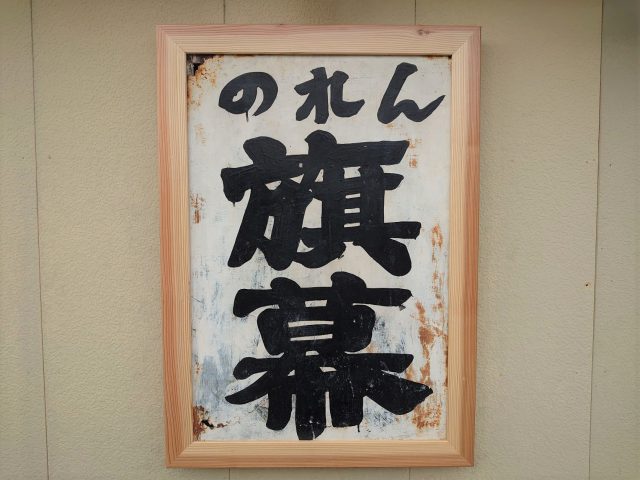 のれん
旗
幕